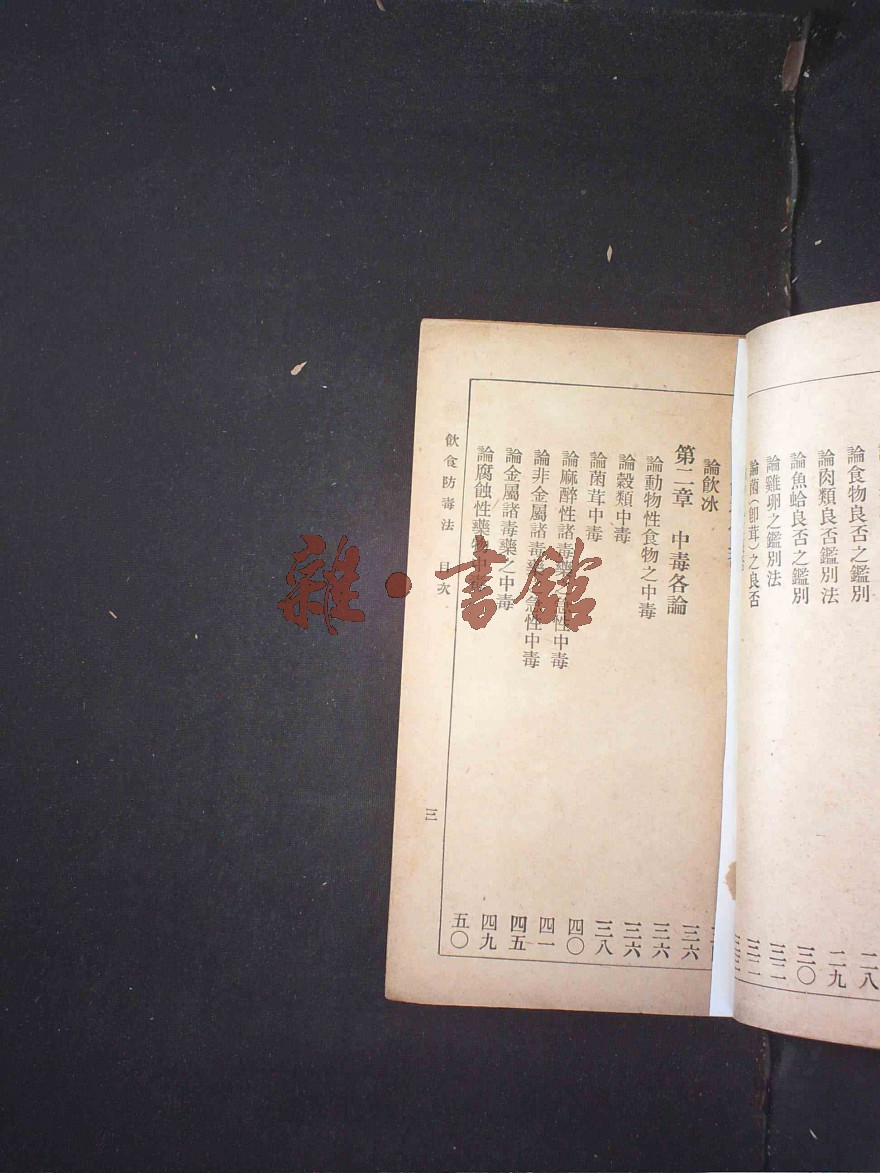 論食物良否之鑑別 二八
論肉類良否鑑別法 二九
論魚蛤良否之鑑別 三〇
論雞卵之鑑別法 三二
論菌(卽茸)之良否 三二
論飲冰 三六
第二章 中毒各論 三六
論動物性食物之中毒 三六
論穀類中毒 三八
論菌茸中毒 四〇
論麻醉性諸毒藥之急性中毒 四一
論非金屬諸毒藥之急性中毒 四五
論金屬諸毒藥之中毒 四九
論腐蝕性藥物中毒 五〇
飲食防毒法 目次 三
雜·書館